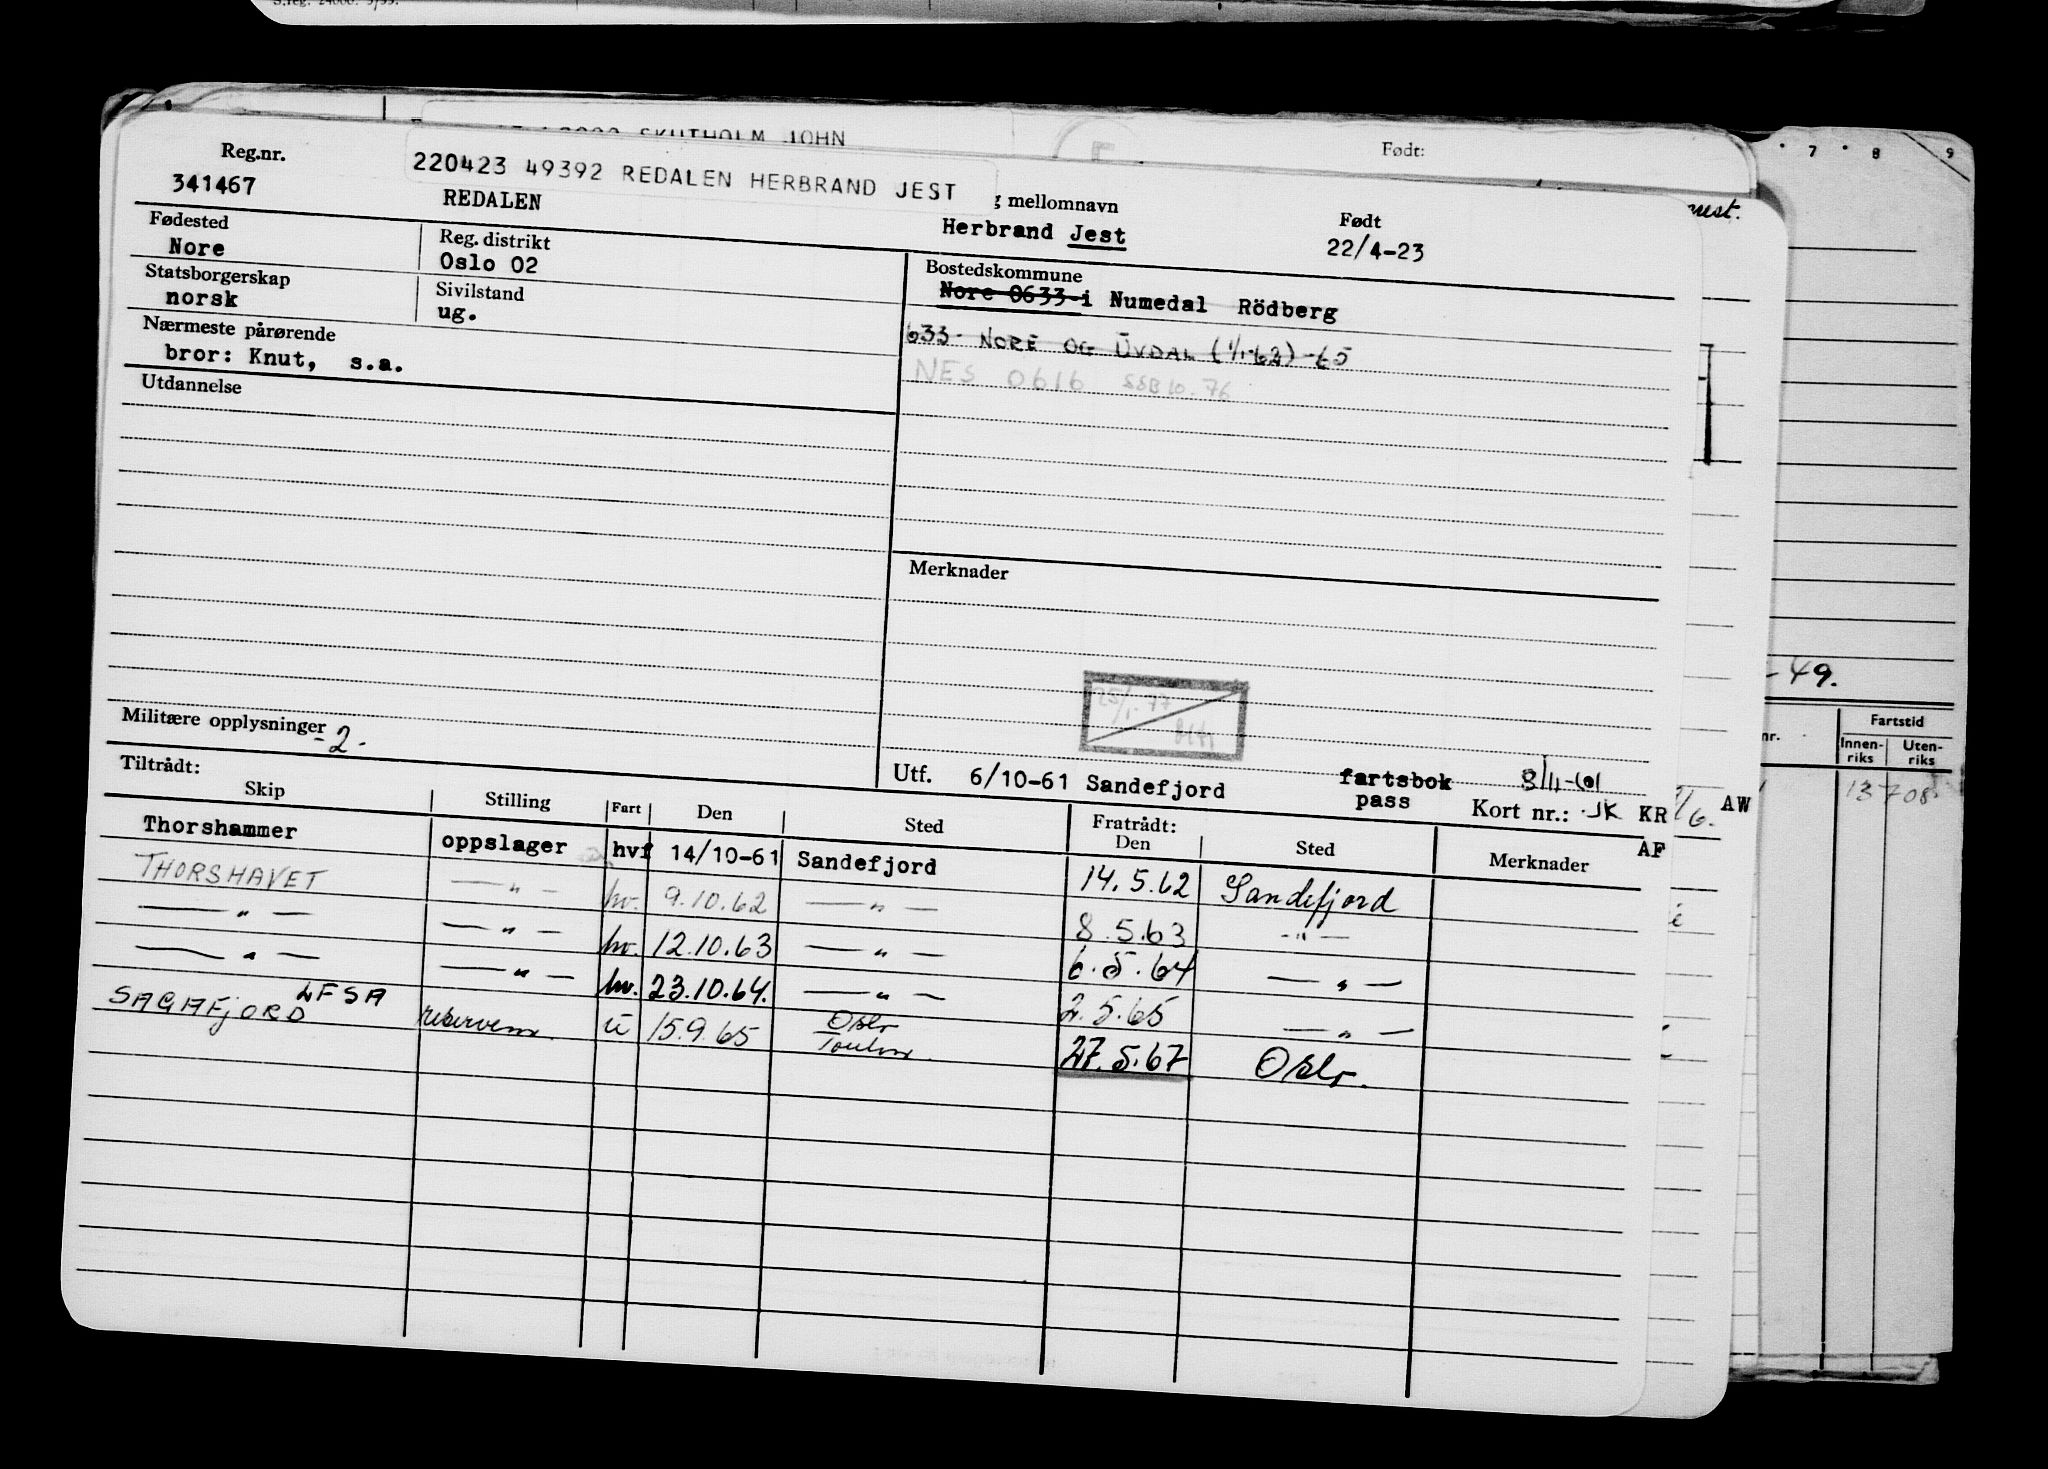 S.reg. 24000. 5/55.
SKUTHOLM JOHN
Født:
7 8 9
Reg.nr.
220423 49392 REDALEN HERBRAND JEST
341467
REDALEN
mellomnavn
Herbrand Jest
Født
22/4-23
Fødested
Nore
Reg. distrikt
Oslo 02
Bostedskommune
Nore 0633-i Numedal Rödberg
Statsborgerskap
norsk
Sivilstand
ug.
633- NORE OG UVDAL (1/1-62) -65
NES 0616 SSB 10.76
Nærmeste pårørende
bror: Knut, s.a.
Utdannelse
Merknader
-49.
25/1.77
Militære opplysninger
-2.
Utf. 6/10-61 Sandefjord
fartsbok
pass
8/11-61
Kort nr.: JK KR
AW
AF
nr.
Fartstid
Innen-
riks
Uten-
riks
13 708
Tiltrådt:
Skip Stilling Fart Den Sted Fratrådt: Den Sted Merknader
Thorshammer oppslager hvf 14/10-61 Sandefjord 14.5.62 Sandefjord
THORSHAVET — " — hv. 9.10.62 — " — 8.5.63 — " —
— " — — " — hv. 12.10.63 — " — 6.5.64 — " —
— " — — " — hv. 23.10.64. — " — 2.5.65 — " —
SAGAFJORD LFSA reservem. u 15.9.65 Oslo Toulon 27.5.67 Oslo.